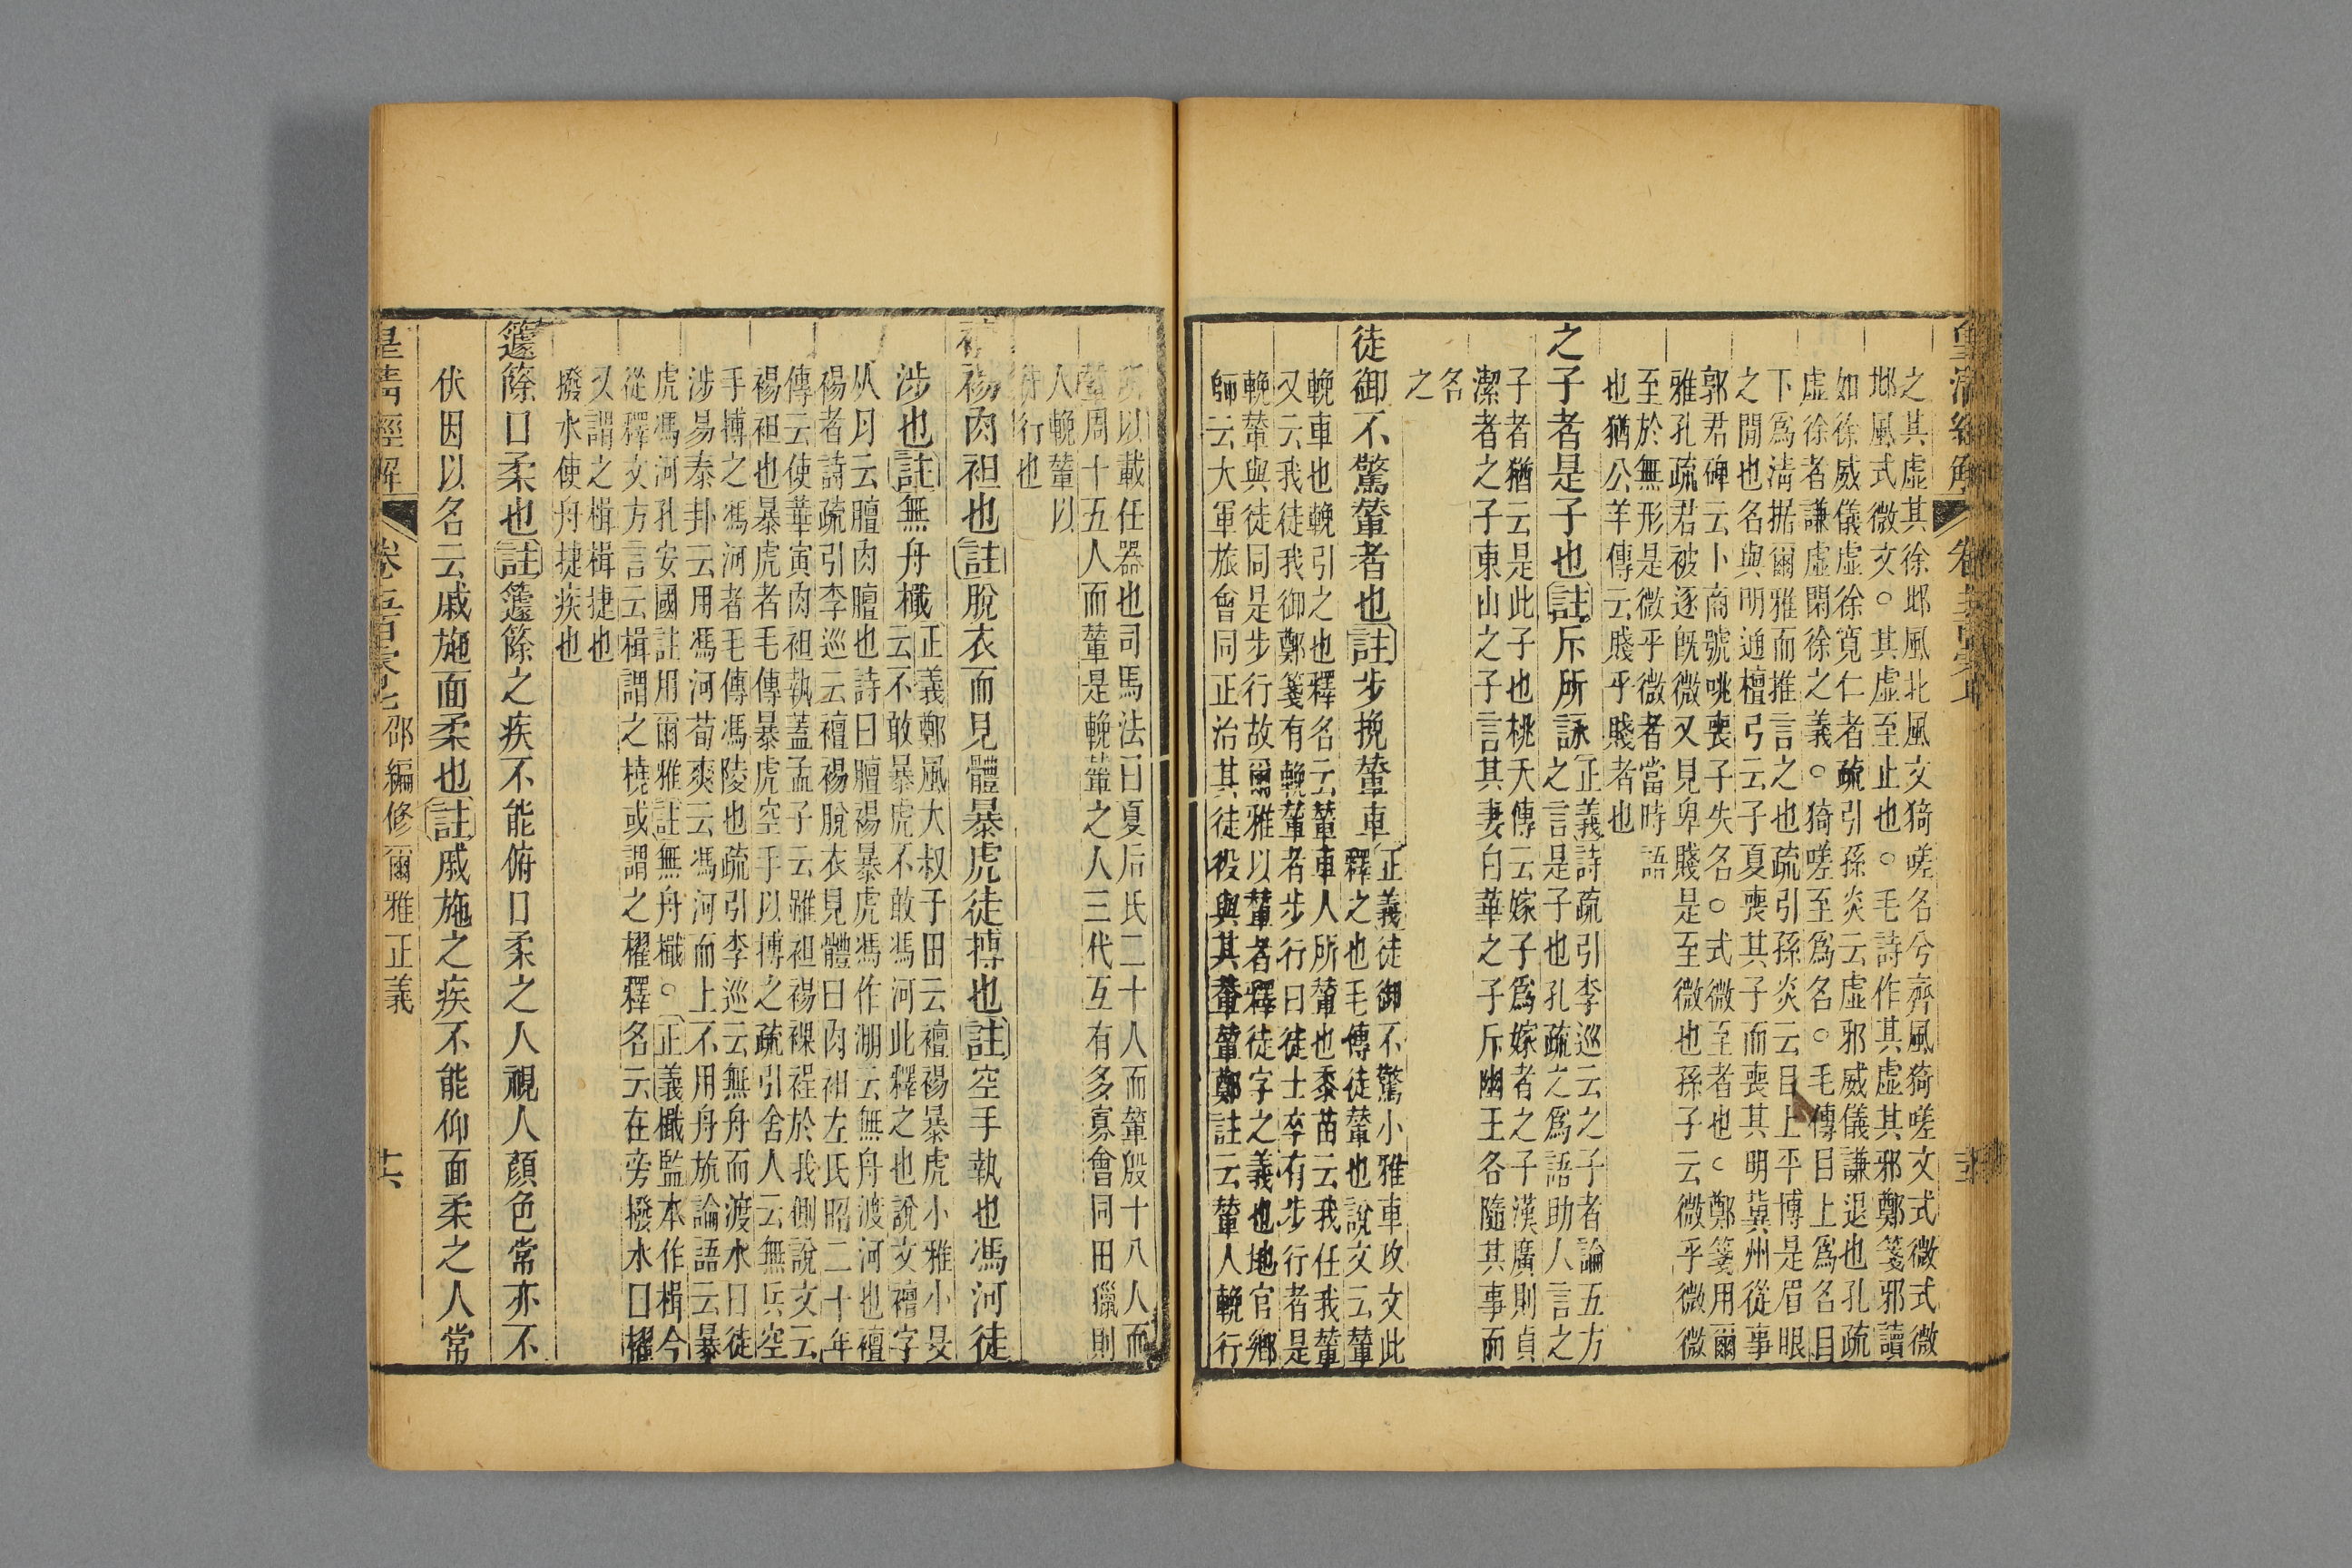 皇清經解
之其虛其徐邶風北風文猗嗟名兮齊風猗嗟文式微式微
邶風式微文○其虛至止也○毛詩作其虛其邪鄭箋邪讀
如徐威儀虛徐寬仁者疏引孫炎云虛邪威儀謙退也孔疏
虛徐者謙虛閑徐之義○猗嗟至爲名○毛傳目上爲名目
下爲淸据爾雅而推言之也疏引孫炎云目上平博是眉眼
之閒也名與明通檀弓云子夏喪其子而喪其明冀州從事
郭君碑云卜商號咷喪子失名○式微至者也○鄭箋用爾
雅孔疏君被逐旣微又見卑賤是至微也孫子云微乎微微
至於無形是微乎微者當時語
也猶公羊傳云賤乎賤者也
之子者是子也註斥所詠
正義詩疏引李巡云之子者論五方
之言是子也孔疏之爲語助人言之
子者猶云是此子也桃夭傳云嫁子爲嫁者之子漢廣則貞
潔者之子東山之子言其妻白華之子斥幽王各隨其事而
名
之
徒御不驚輦者也註步挽輦車
正義徒御不驚小雅車攻文此
釋之也毛傳徒輦也說文云輦
輓車也輓引之也釋名云輦車人所輦也黍苗云我任我輦
又云我徒我御鄭箋有輓輦者步行曰徒士卒有步行者是
輓輦與徒同是步行故爾雅以輦者釋徒字之義也地官鄉
師云大軍旅會同正治其徒役與其輂輦鄭註云輦人輓行
所以載任器也司馬法曰夏后氏二十人而輦殷十八人而
輦周十五人而輦是輓輦之人三代互有多寡會同田獵則
人輓輦以
徒行也
襢裼肉袒也註脫衣而見體暴虎徒搏也註空手執也馮河徒
涉也註無舟檝
正義鄭風大叔于田云襢裼暴虎小雅小旻
云不敢暴虎不敢馮河此釋之也說文襢字
从月云膻肉膻也詩曰膻裼暴虎馮作淜云無舟渡河也襢
裼者詩疏引李巡云襢裼脫衣見體曰肉袒左氏昭二十年
傳云使華寅肉袒執蓋孟子云雖袒裼裸裎於我側說文云
裼袒也暴虎者毛傳暴虎空手以搏之疏引舍人云無兵空
手搏之馮河者毛傳馮陵也疏引李巡云無舟而渡水曰徒
涉易泰卦云用馮河荀爽云馮河而上不用舟旅論語云暴
虎馮河孔安國註用爾雅註無舟檝○正義檝監本作楫今
從釋文方言云楫謂之橈或謂之櫂釋名云在旁撥水曰櫂
又謂之楫楫捷也
撥水使舟捷疾也
籧篨口柔也註籧篨之疾不能俯口柔之人視人顏色常亦不
伏因以名云戚施面柔也註戚施之疾不能仰面柔之人常
皇清經解 卷五百 邵編修爾雅正義